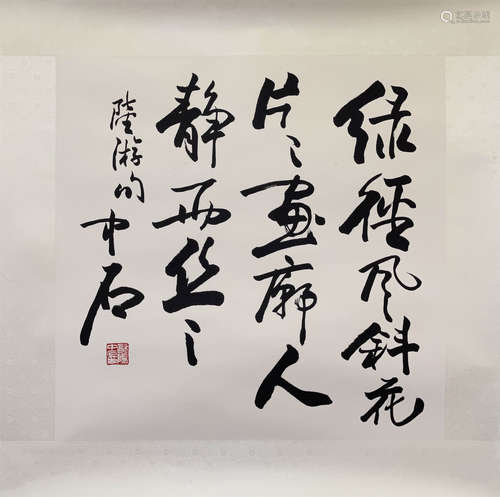 绿径风斜花
片〻画廊人
静雨丝〻
陆游句中石